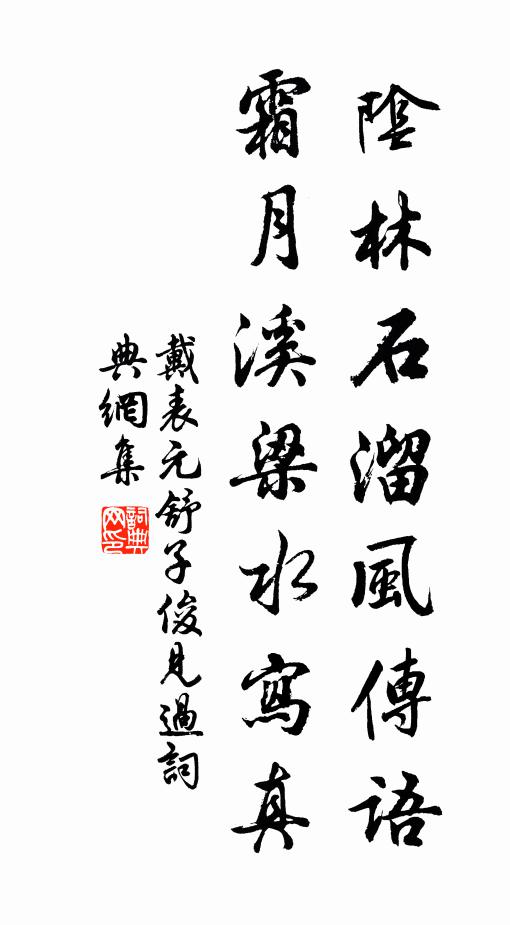 陰林石溜風傳語
霜月溪梁水寫真
戴表元舒子俊見過詞
典網集
詞典網印